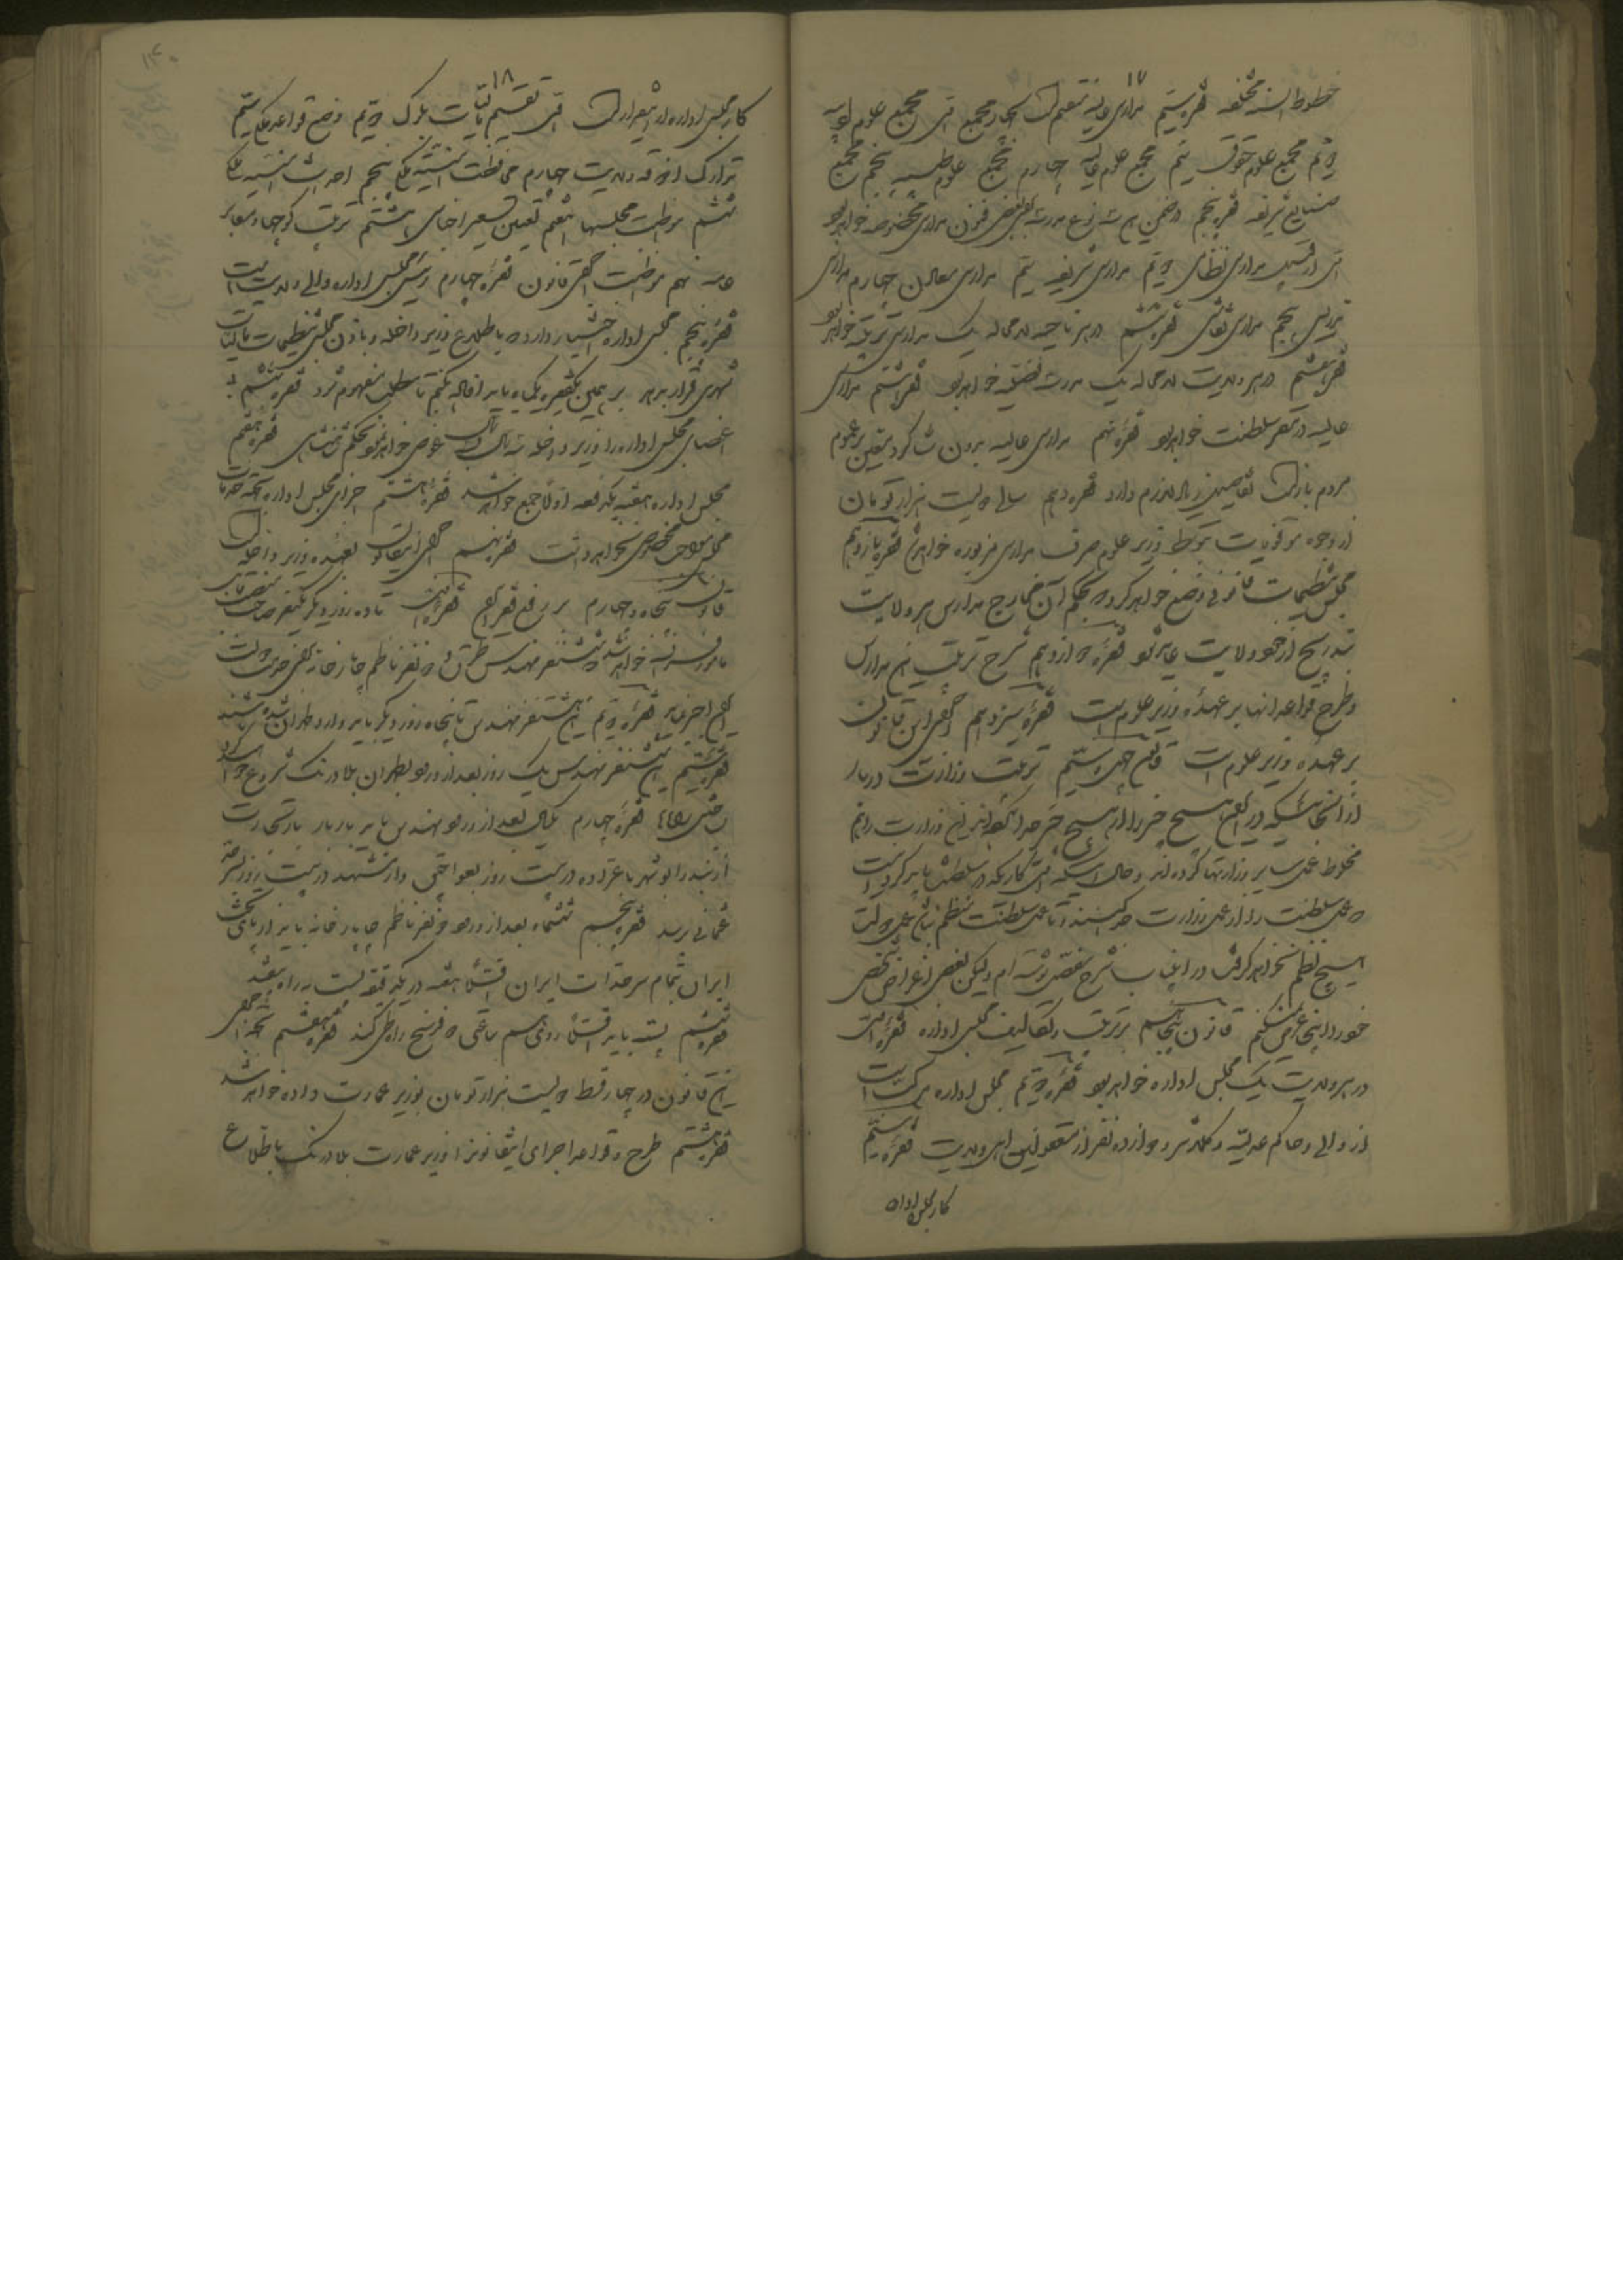 ۱۷
خطوط السنه مختلفه فقره سیم مدارس عالیه منقسم است به پنج مجمع اول مجمع علوم ادبیه
دویم مجمع علوم حقوق سیم مجمع علوم عالیه چهارم مجمع علوم طبیه پنجم مجمع
صنایع شریفه فقره پنجم در ضمن این سه نوع مدرسه بجهة بعضی فنون مدارس مخصوصه خواهد بود
از قبیل مدارس نظامی دویم مدارس شریفه سیم مدارس معادن چهارم مدارس
تدریس پنجم مدارس نقاشی فقره ششم در هر ناحیه لامحاله یک مدارس تربیه خواهد بود
فقره هفتم در هر ولایت لامحاله یک مدرسه فضلیه خواهد بود فقره هشتم مدارس
عالیه در مقر سلطنت خواهد بود فقره نهم مدارس عالیه بدون شاگرد بتعیین بر عموم
مردم باز است تفاصیل زیاد لازم دارد فقره دهم سالی دویست هزار تومان
از وجوه موقوفات بتوسط وزیر علوم صرف مدارس مزبوره خواهد شد فقره یازدهم
مجلس تنظیمات قانونی وضع خواهد کرد که بحکم آن مخارج مدارس هر ولایت
بتدریج از خود ولایت عاید شود فقره دوازدهم شرح ترتیب این مدارس
و طرح قواعد آنها بر عهدهٔ وزیر علوم است فقره سیزدهم اجرای این قانون
بر عهده وزیر علوم است قانون چهل و سیم ترتیب وزارت دربار
از آنجائیکه در ایران هیچ چیز را از هیچ چیز جدا نکرده‌اند این وزارت را هم
مخلوط عمل سایر وزارتها کرده‌اند و حال آنکه اول کاریکه در سلطنت باید کرد اینست
که عمل سلطنت را از عمل وزارت جدا کنند و تا عمل سلطنت منظم نباشد عمل دولت
هیچ نظم نخواهد گرفت در این باب شرح مفصلی نوشته‌ام ولیکن بعضی اغراض شخصی
خود را اینجا عرض نمیکنم قانون پنجاهم ترتیب و تکالیف مجلس اداره فقره اول
در هر ولایت یک مجلس اداره خواهد بود فقره دویم مجلس اداره مرکب است
از والی و حاکم عدلیه و کلانتر و دوازده نفر از معقولین اهل ولایت فقره سیم
کار مجلس اداره
۱۸
کار مجلس اداره از اینقرار است اول تقسیم مالیات بلوک دویم وضع قواعد ملکی سیم
تدارک آذوقه ولایت چهارم محافظت ابنیه ملکی پنجم احداث ابنیه ملکی
ششم مواظبت محبسها هفتم تعیین تسعیر اجناس هشتم ترتیب کوچها و معابر
عامه نهم مواظبت اجرای قانون فقره چهارم رئیس مجلس اداره والی ولایت است
فقره پنجم مجلس اداره اختیار دارد که باطلاع وزیر داخله و باذن مجلس تنظیمات مالیات
شهری قرار بدهد بر همین یکفقره یکماه باید افاده بکنیم تا مطلب مفهوم شود فقره ششم
اعضای مجلس اداره را وزیر داخله سال بسال عوض خواهد نمود بحکم شاهنشاهی فقره هفتم
مجلس اداره هفته یکدفعه اولاً جمع خواهد شد فقره هشتم اجزای مجلس اداره بجهة خدمات
مجلس مواجب مخصوص نخواهند داشت فقره نهم اجرای این قانون بعهده وزیر داخله است
قانون پنجاه و چهارم بر رفع فقر ایران فقره اول تا ده روز دیگر یکنفر صاحب منصب قابل
مامور فرنگستان خواهد شد که بیست نفر مهندس طرق و ده نفر ناظم چاپارخانه بجهة خدمت دولت
ایران اجیر نماید فقره دویم این بیست نفر مهندس تا پنجاه روز دیگر باید وارد طهران شده باشند
فقره سیم این بیست نفر مهندس یک روز بعد از ورود بطهران بلادرنک شروع خواهند کرد
بساختن راهها فقره چهارم یکسال بعد از ورود مهندس باید بار تجارت
از بندر ابوشهر با عراده در بیست روز بعراق عجم و از مشهد در بیست روز بسرحد
عثمانی برسد فقره پنجم ششماه بعد از ورود ده نفر ناظم چاپارخانه باید از پایتخت
ایران بتمام سرحدات ایران اقلاً هفته در یکدفعه پست براه بیفتد
فقره ششم پست باید اقلاً رویهم ساعتی دو فرسخ راه طی کند فقره هفتم بجهة اجرای
این قانون در چهار قسط دویست هزار تومان بوزیر عمارت داده خواهد شد
فقره هشتم طرح و قواعد اجرای اینقانونرا وزیر عمارت بلادرنک باطلاع